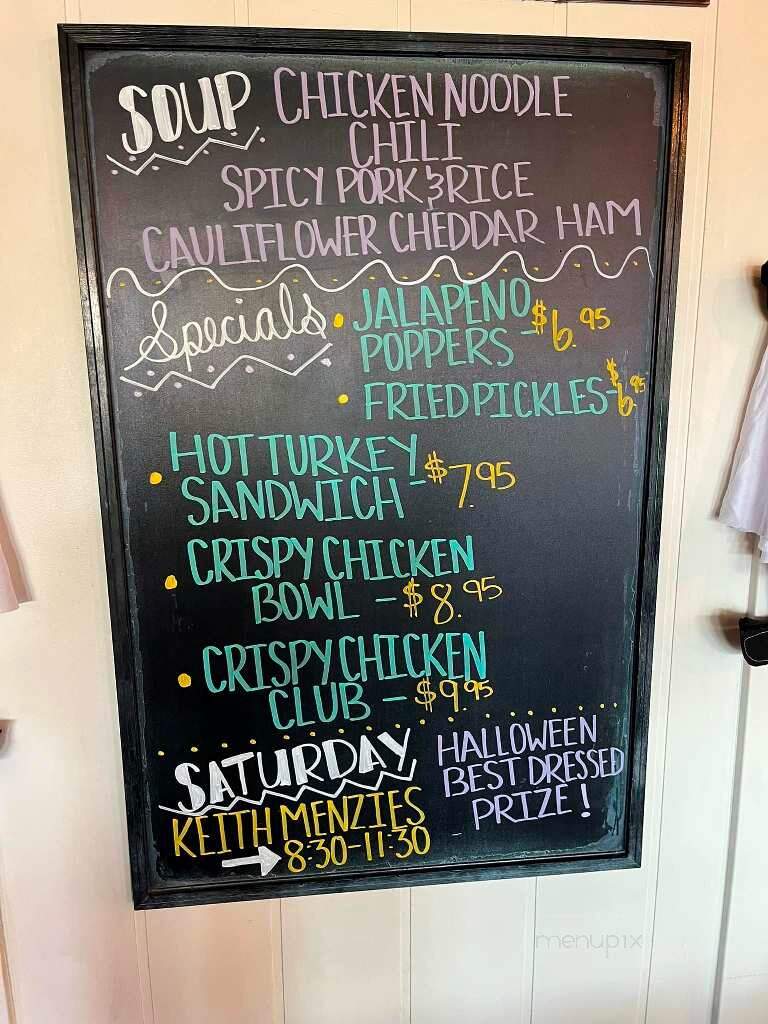 SOUP CHICKEN NOODLE
CHILI
SPICY PORK & RICE
CAULIFLOWER CHEDDAR HAM
Specials • JALAPENO
POPPERS - $6.95
• FRIED PICKLES - $6.95
• HOT TURKEY
SANDWICH - $7.95
• CRISPY CHICKEN
BOWL - $8.95
• CRISPY CHICKEN
CLUB - $9.95
SATURDAY
KEITH MENZIES
→ 8:30-11:30
HALLOWEEN
BEST DRESSED
PRIZE!
menupix